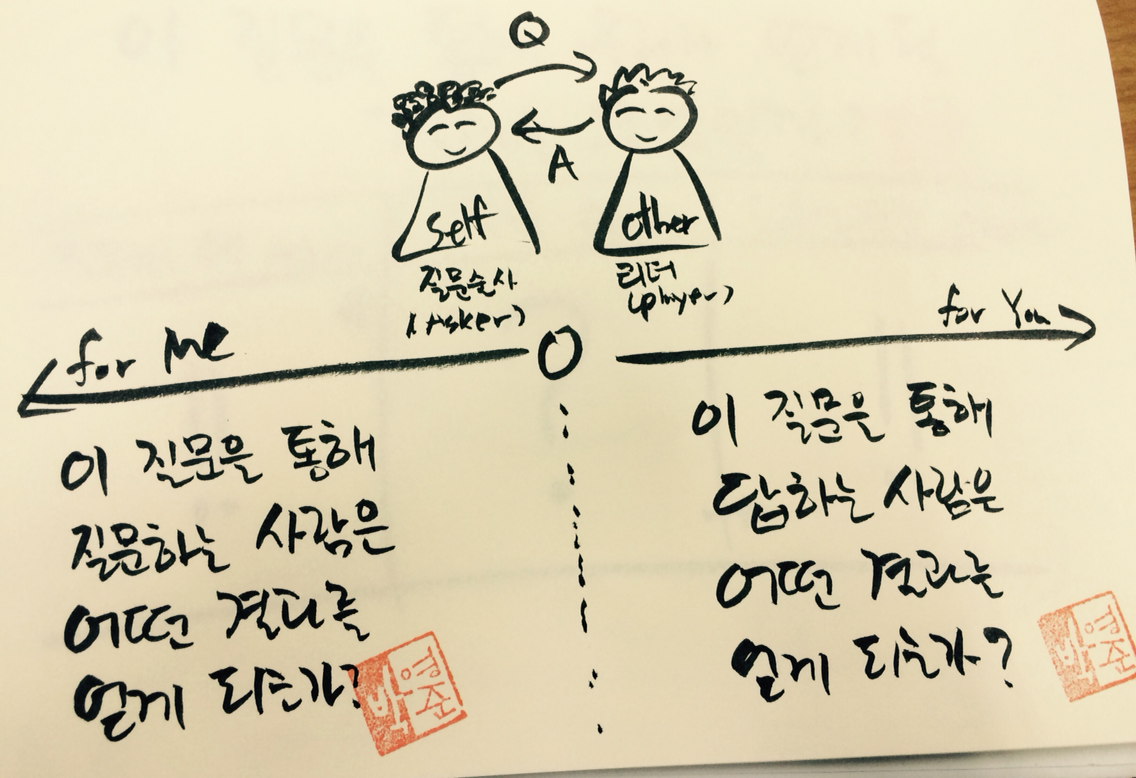 Q
A
Self
Other
질문술사
(Asker)
리더
(player)
for Me
O
for You
이 질문을 통해
질문하는 사람은
어떤 결과를
얻게 되는가?
이 질문을 통해
답하는 사람은
어떤 결과를
얻게 되는가?
박
영준
박
영준